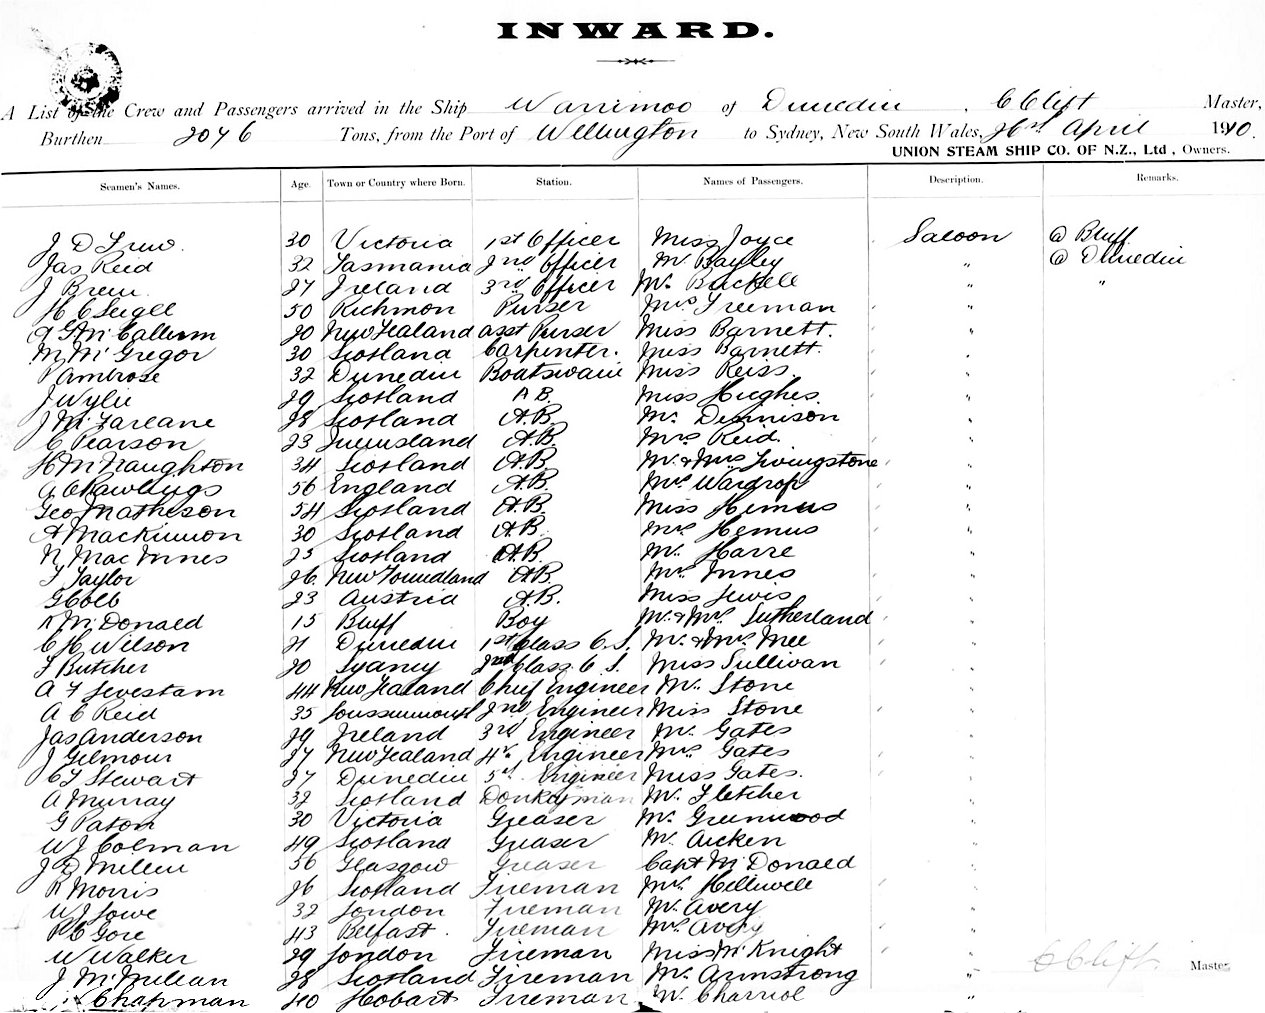 INWARD.
A List of the Crew and Passengers arrived in the Ship Warrimoo of Dunedin, C Clift Master,
Burthen 2076 Tons, from the Port of Wellington to Sydney, New South Wales, 26th April 1910.
UNION STEAM SHIP CO. OF N.Z., Ltd, Owners.
Seamen's Names. Age. Town or Country where Born. Station. Names of Passengers. Description. Remarks.
J D 30 Victoria 1st Officer Miss Joyce Saloon @ Bluff
Jas Reid 32 Tasmania 2nd Officer Mr Bayley " @ Dunedin
J 27 Ireland 3rd Officer "  "
H C 50 Richmon Purser Mrs Freeman "
McCallum 20 New Zealand asst Purser Miss Barnett. "
M McGregor 30 Scotland Carpenter. Miss Barnett. "
P Ambrose 32 Dunedin Boatswain Miss Reiss. "
J Wylie 29 Scotland A B. Miss Hughes. "
J McFarlane 28 Scotland A.B. Mr Dennison "
C Pearson 23 Queensland A.B. Mrs Reid. "
H McNaughton 34 Scotland A.B. Mr & Mrs Livingstone "
A Rawlings 56 England A.B. Mrs Wardrop "
Geo Matheson 54 Scotland A.B. Miss Hemus "
A MacKinnon 30 Scotland A.B. Mrs Hemus "
N MacInnes 25 Scotland A.B. Mr. Harre "
T Taylor 26. New Foundland A.B. Innes "
G 23 Austria A.B. Miss Lewis "
McDonald 15 Bluff Boy Mr & Mrs Sutherland "
C H Wilson 21 Dunedin 1st Class C.S. Mr & Mrs Mee "
T Butcher 20 Sydney 2nd Class C S. Miss Sullivan "
A F Levestam 44 New Zealand Chief Engineer Mr. Stone "
A C Reid 35 2nd Engineer Miss Stone "
Jas Anderson 29 Ireland 3rd Engineer Mr. Gates "
J Gilmour 27 New Zealand 4th Engineer Mrs Gates "
C F Stewart 27 Dunedin 5th Engineer Miss Gates. "
A Murray 32 Scotland Donkeyman Mr. Fletcher "
G Paton 30 Victoria Greaser Mr Greenwood "
W J Colman 49 Scotland Greaser Mr. Aicken "
J 56 Glasgow Greaser Capt McDonald "
R Morris 26 Scotland Fireman Mrs Helliwell "
W J Lowe 32 London Fireman Mr. Avery "
P C Gore 43 Belfast. Fireman Mrs Avery "
W Walker 29 London Fireman Miss McKnight "
J McMillan 28 Scotland Fireman Mr. Armstrong "
Chapman 40 Hobart Fireman "
C Clift. Master